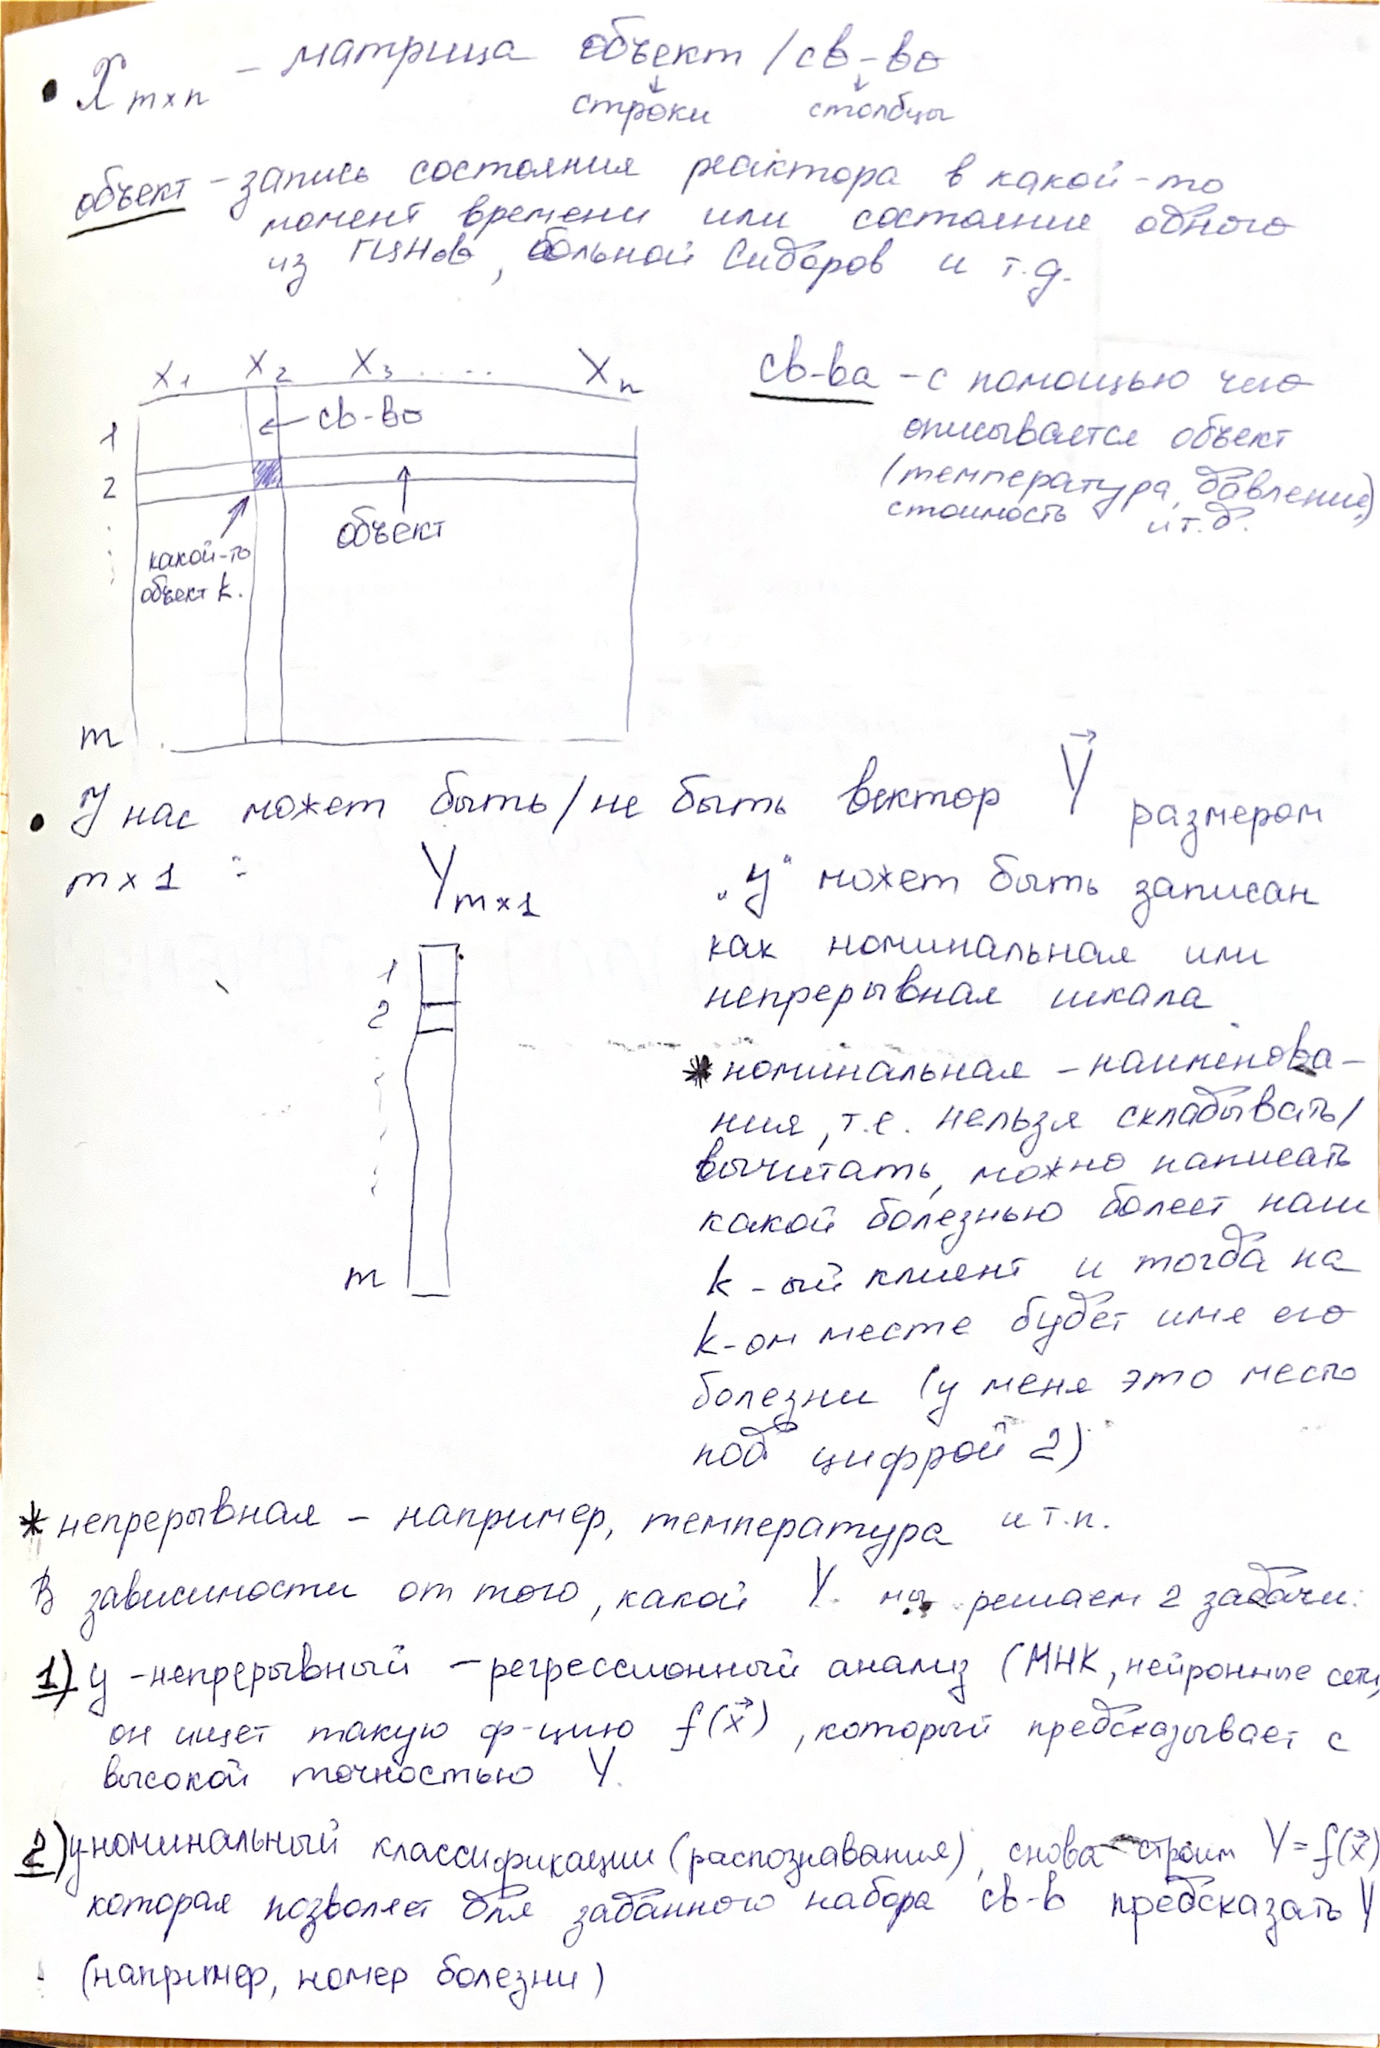 • X m×n – матрица объект / св-во
строки столбцы
объект – запись состояния реактора в какой-то
момент времени или состояние одного
из ГЦНов, больной Сидоров и т.д.
X1 X2 X3 ..... Xn
св-ва – с помощью чего
описывается объект
(температура, давление,)
стоимость и т.д.
1
← св-во
2
объект
какой-то
объект k.
m
• У нас может быть / не быть вектор Y размером
m×1 : Y m×1
„y“ может быть записан
как номинальная или
непрерывная шкала
1
2
m
* номинальная – наименова-
ния, т.е. нельзя складывать/
вычитать, можно написать
какой болезнью болеет наш
k-ый клиент и тогда на
k-ом месте будет имя его
болезни (у меня это место
под цифрой 2)
* непрерывная – например, температура и т.п.
В зависимости от того, какой Y мы решаем 2 задачи:
1) y – непрерывный – регрессионный анализ (МНК, нейронные сети,
он ищет такую ф-цию f(x⃗), который предсказывает с
высокой точностью Y.
2) y номинальный классификации (распознавания), снова строим Y = f(x⃗)
которая позволяет для заданного набора св-в предсказать Y
(например, номер болезни)